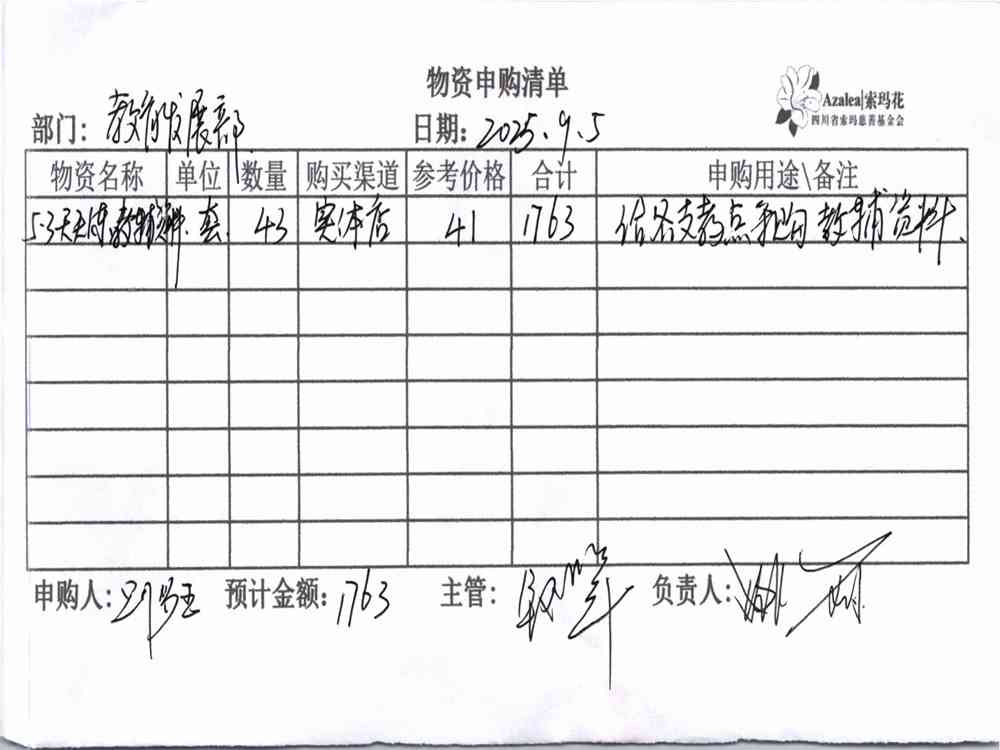 物资申购清单
Azalea|索玛花
四川省索玛慈善基金会
部门：教育发展部 日期：2025.9.5
物资名称 单位 数量 购买渠道 参考价格 合计 申购用途\备注
5.3天天练教辅资料. 套. 43 实体店 41 1763 给各支教点采购教辅资料.
申购人： 预计金额：1763 主管： 负责人：